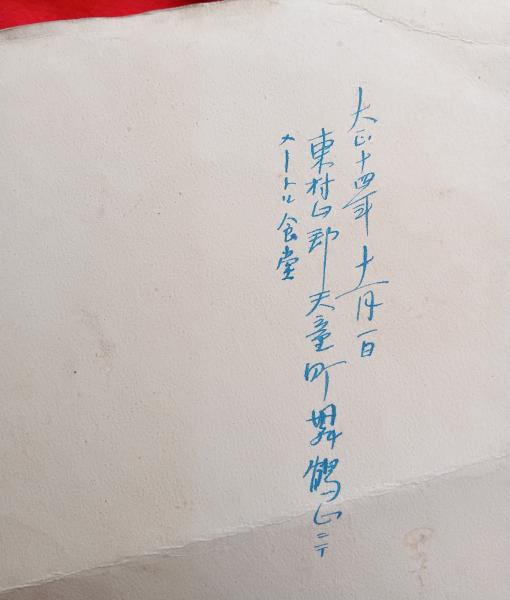 大正十四年十一月一日
東村山郡天童町舞鶴山ニテ
メートル食堂